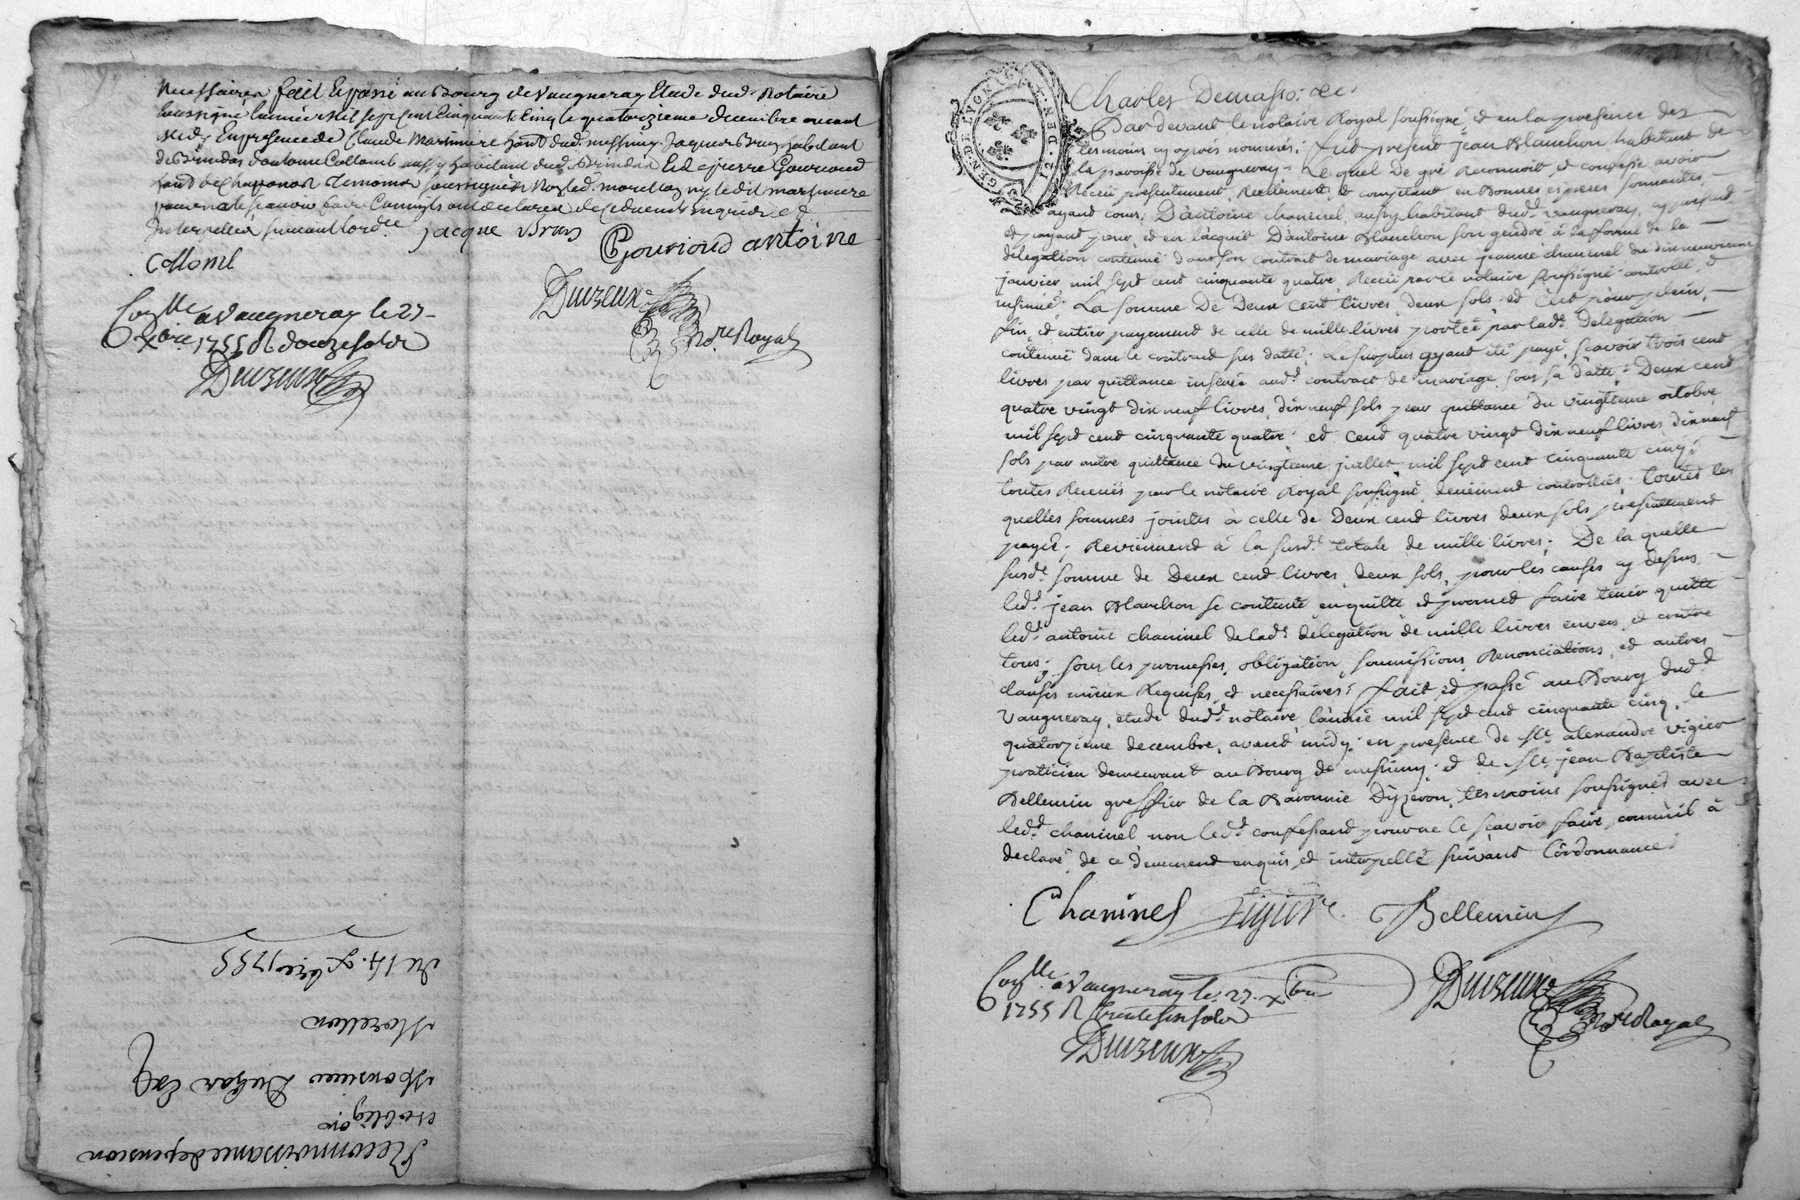 necessaires fait et passé au Bourg de Vaugneray Etude dud. Notaire
soussigné l'année mil sept cent cinquante cinq le quatorzieme decembre avant
midy En presence de Claude Marsiniere hant dud. messimy Jaques Brun habitant
de Brindas d'antoine Collomb aussy habitant dud. Brindas Et de pierre Gouvioud
soussignés Non led. morellon ny le dit marsiniere
pour ne le scavoir faire Comm'ils ont declaré de ce duement enquis et
Interpellés suivant lord.ce jacque Brun
Gouvioud antoine
collomb
Duvzeux
No.re Royal
Con.lle a Vaugneray le 27
xbre 1755 R douze sols
Duvzeux
Du 14. xbre 1755
Morellon
Monsieur Dugas Esc
et oblig.on
Reconnoissance de pension
GEN. DE LYON
12. DEN. X.
Charles Demasso. &c.
Par devant le notaire Royal soussigné et en la presence des
temoins cy apres nommés; fut present jean Blanchon habitant de
la paroisse de vaugneray; Lequel De gré Reconnoit et confesse avoir
Receu presentement, Reellement, et comptant en Bonnes especes sonnantes
ayant cours; D'antoine chaninel, aussy habitant dud.t vaugneray, cy present
et payant pour, et en l'acquit D'antoine Blanchon son gendre à la forme de la
delegation contenue dans son contract de mariage avec jeanne chaninel du dix neuvieme
janvier, mil sept cent cinquante quatre, Receu par le notaire soussigné controllé, et
insinué; La somme De Deux cent livres, deux sols; et c'est pour plein,
fin, et entier payement de celle de mille livres portée par lad.e delegation
contenue dans le contract sus datté; Le surplus ayant eté payé, scavoir trois cent
livres par quittance inserée aud.t contract de mariage, sous sa datte; Deux cent
quatre vingt dix neuf livres, dix neuf sols par quittance du vingtieme octobre
mil sept cent cinquante quatre; et Cent quatre vingt dix neuf livres dix neuf
sols par autre quittance du vingtieme juillet, mil sept cent cinquante cinq;
toutes Receües par le notaire Royal soussigné, deüement controllées; toutes les
quelles sommes jointes à celle de Deux cent livres deux sols presentement
payée; Reviennent à la susd.e totale de mille livres; De la quelle
susd.e somme de Deux cent livres, deux sols, pour les causes cy dessus
led.t jean Blanchon se contente en quitte et promet faire tenir quitte
led.t antoine chaninel de lad.e delegation de mille livres envers, et contre
tous; sous les promesses, obligation, soumissions, Renonciations, et autres
clauses mieux Requises, et necessaires; fait et passé au Bourg dud.t
Vaugneray, etude dud.t notaire l'année mil sept cent cinquante cinq, le
quatorzieme decembre, avant midy; en presence de s.r alexandre vigier
praticien demeurant au Bourg de messimy; et de s.r jean Baptiste
Bellemin greffier de la Baronnie D'yzeron, temoins soussignés avec
led.t chaninel non led.t confessant pour ne le scavoir faire, comm'il à
declaré de ce deument enquis, et interpellé suivant l'ordonnance;
Chaninel Vigier Bellemin
Con.lle a Vaugneray le 27. xbre
1755 R trente six sols
Duvzeux
No.re Royal
Duvzeux